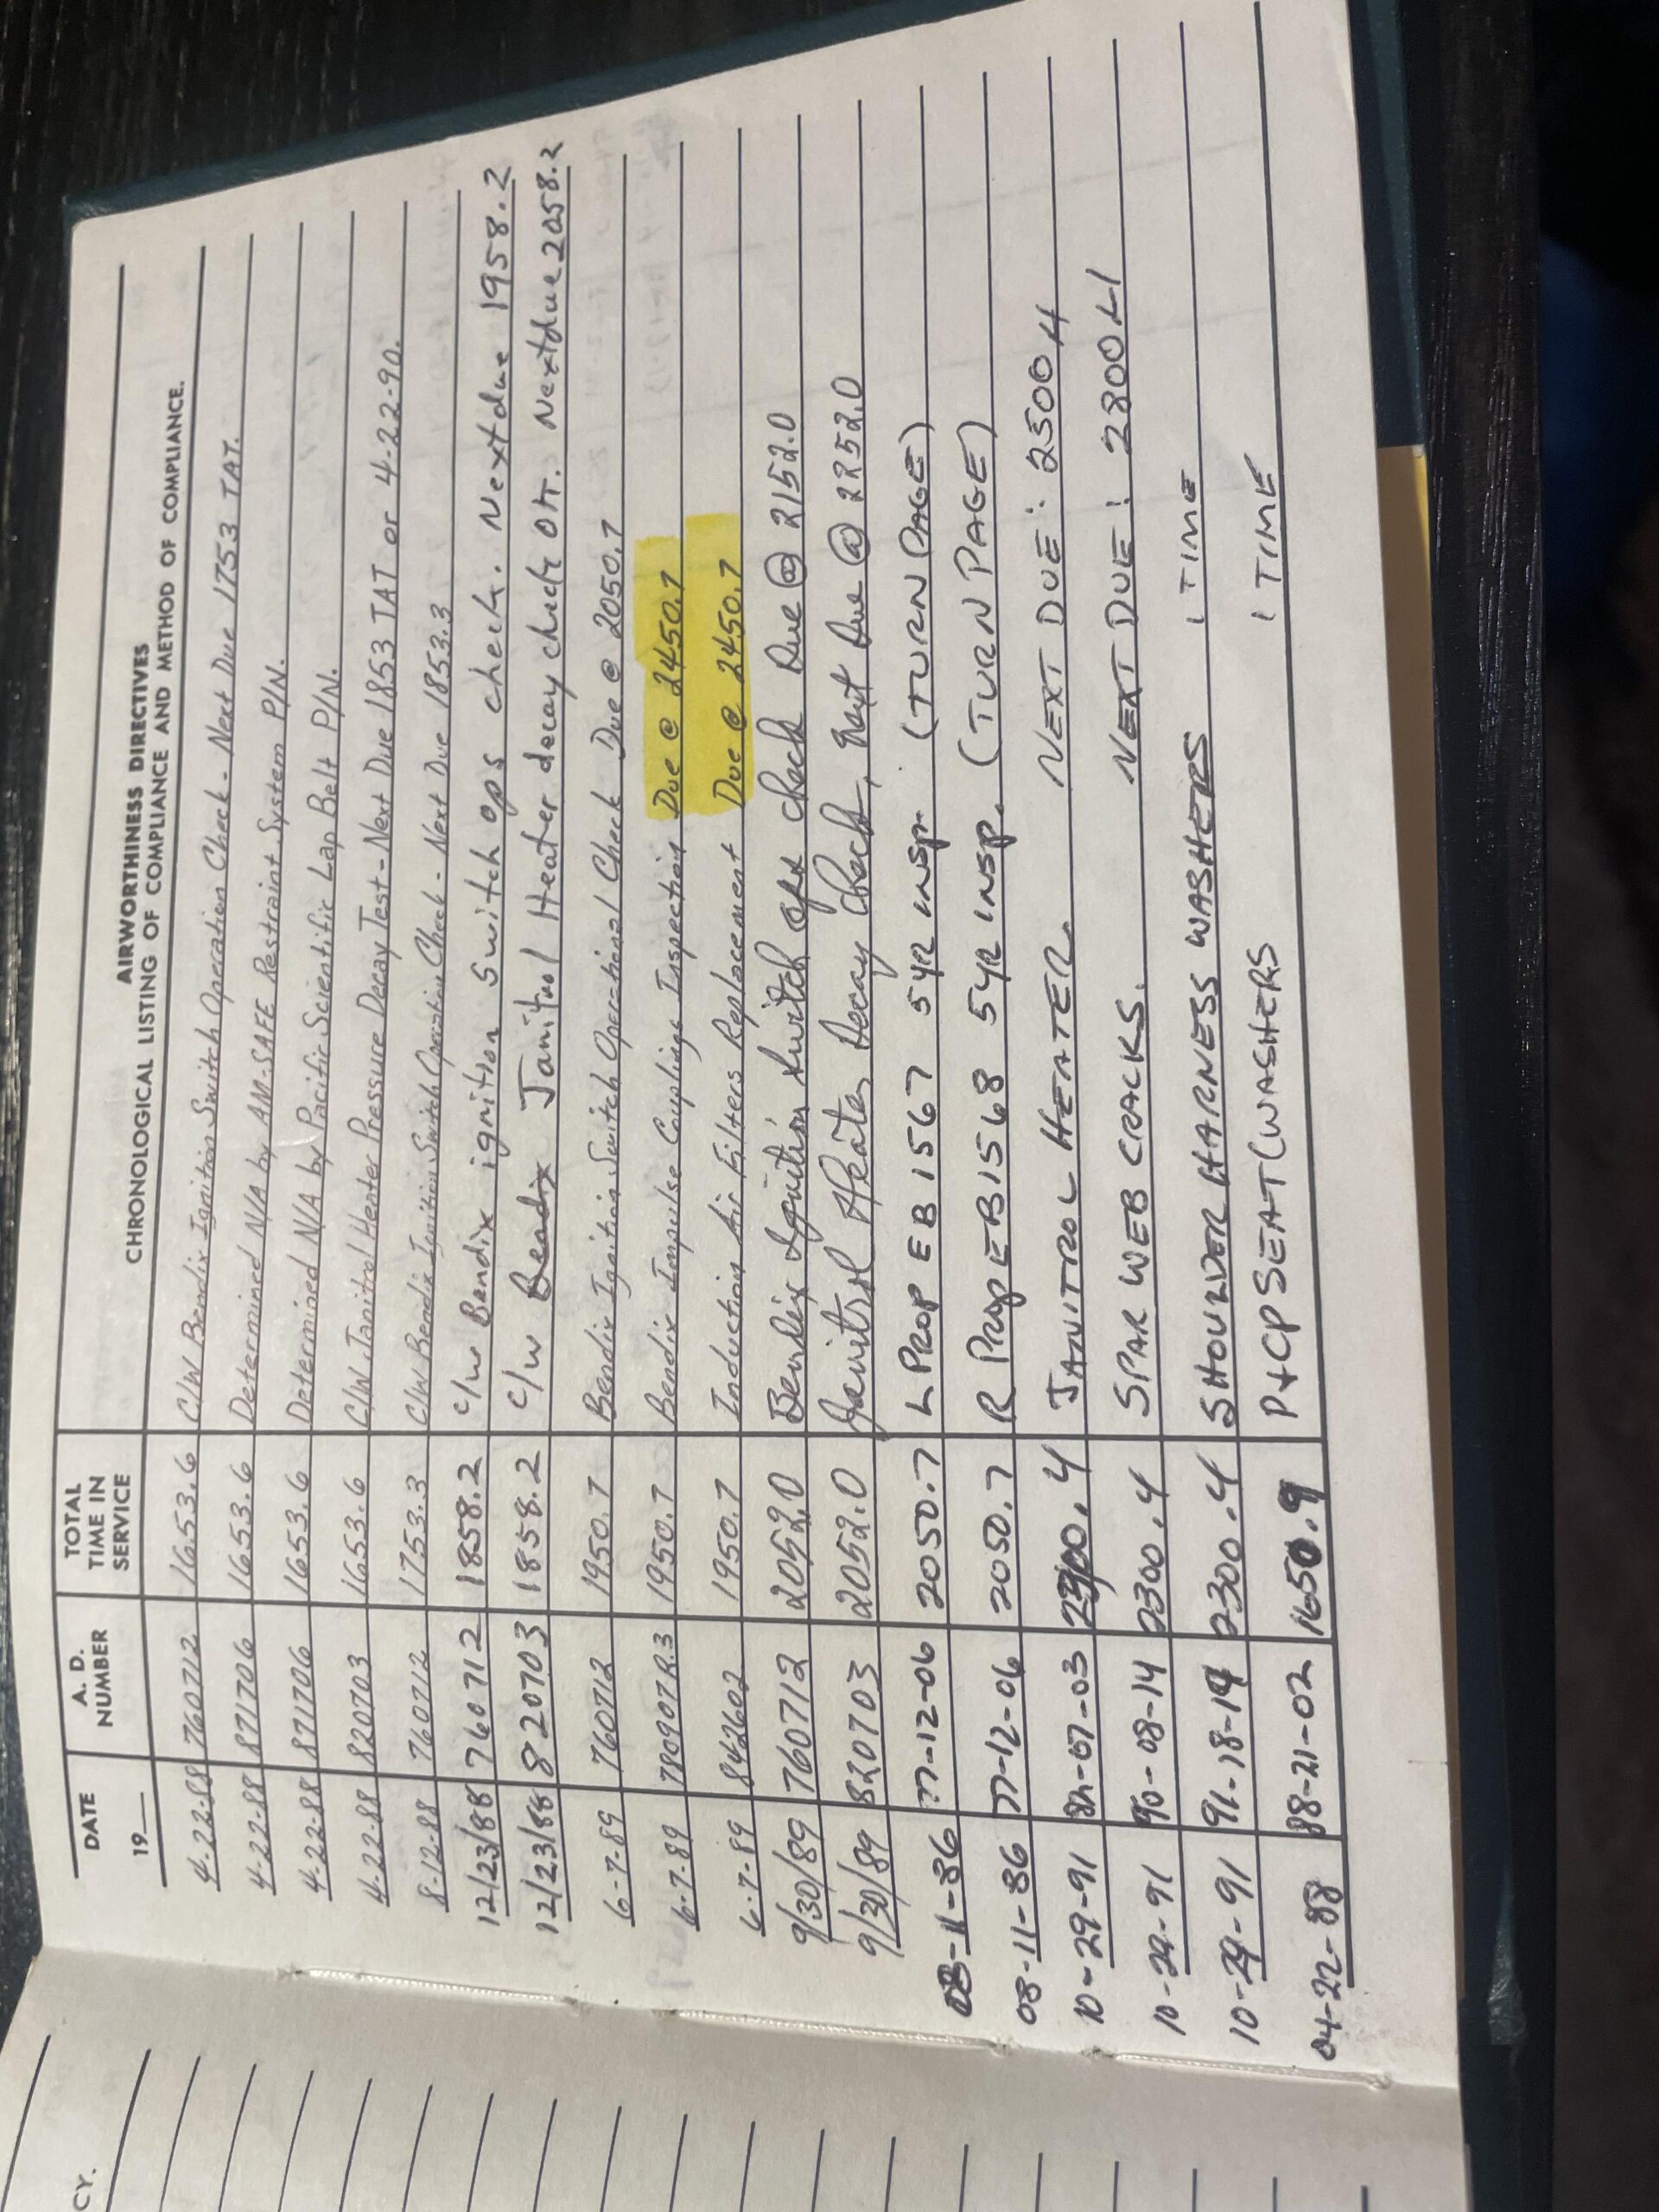 CY.
AIRWORTHINESS DIRECTIVES
CHRONOLOGICAL LISTING OF COMPLIANCE AND METHOD OF COMPLIANCE.
DATE 19__ A. D. NUMBER TOTAL TIME IN SERVICE
4-22-88 760712 1653.6 C/W Bendix Ignition Switch Operation Check - Next Due 1753 TAT.
4-22-88 871706 1653.6 Determined N/A by AM-SAFE Restraint System P/N.
4-22-88 871706 1653.6 Determined N/A by Pacific Scientific Lap Belt P/N.
4-22-88 820703 1653.6 C/W Janitrol Heater Pressure Decay Test - Next Due 1853 TAT or 4-22-90.
8-12-88 760712 1753.3 C/W Bendix Ignition Switch Operation Check - Next Due 1853.3
12/23/88 760712 1858.2 C/W Bendix ignition switch ops check. Next due 1958.2
12/23/88 820703 1858.2 C/W Bendix Janitrol Heater decay check OK. Next due 2058.2
6-7-89 760712 1950.7 Bendix Ignition Switch Operational Check Due @ 2050.7
6-7-89 780907R.3 1950.7 Bendix Impulse Coupling Inspection Due @ 2450.7
6-7-89 842602 1950.7 Induction Air Filters Replacement Due @ 2450.7
9/30/89 760712 2052.0 Bendix Ignition Switch ops check Due @ 2152.0
9/30/89 820703 2052.0 Janitrol Heater Decay Check, Next Due @ 2252.0
08-11-86 77-12-06 2050.7 L PROP EB1567 5YR INSP. (TURN PAGE)
08-11-86 77-12-06 2050.7 R PROP EB1568 5YR INSP. (TURN PAGE)
10-29-91 82-07-03 2300.4 JANITROL HEATER. NEXT DUE: 2500.4
10-29-91 90-08-14 2300.4 SPAR WEB CRACKS. NEXT DUE: 2800.4
10-29-91 91-18-14 2300.4 SHOULDER HARNESS WASHERS 1 TIME
04-22-88 88-21-02 1650.9 P+CP SEAT (WASHERS 1 TIME